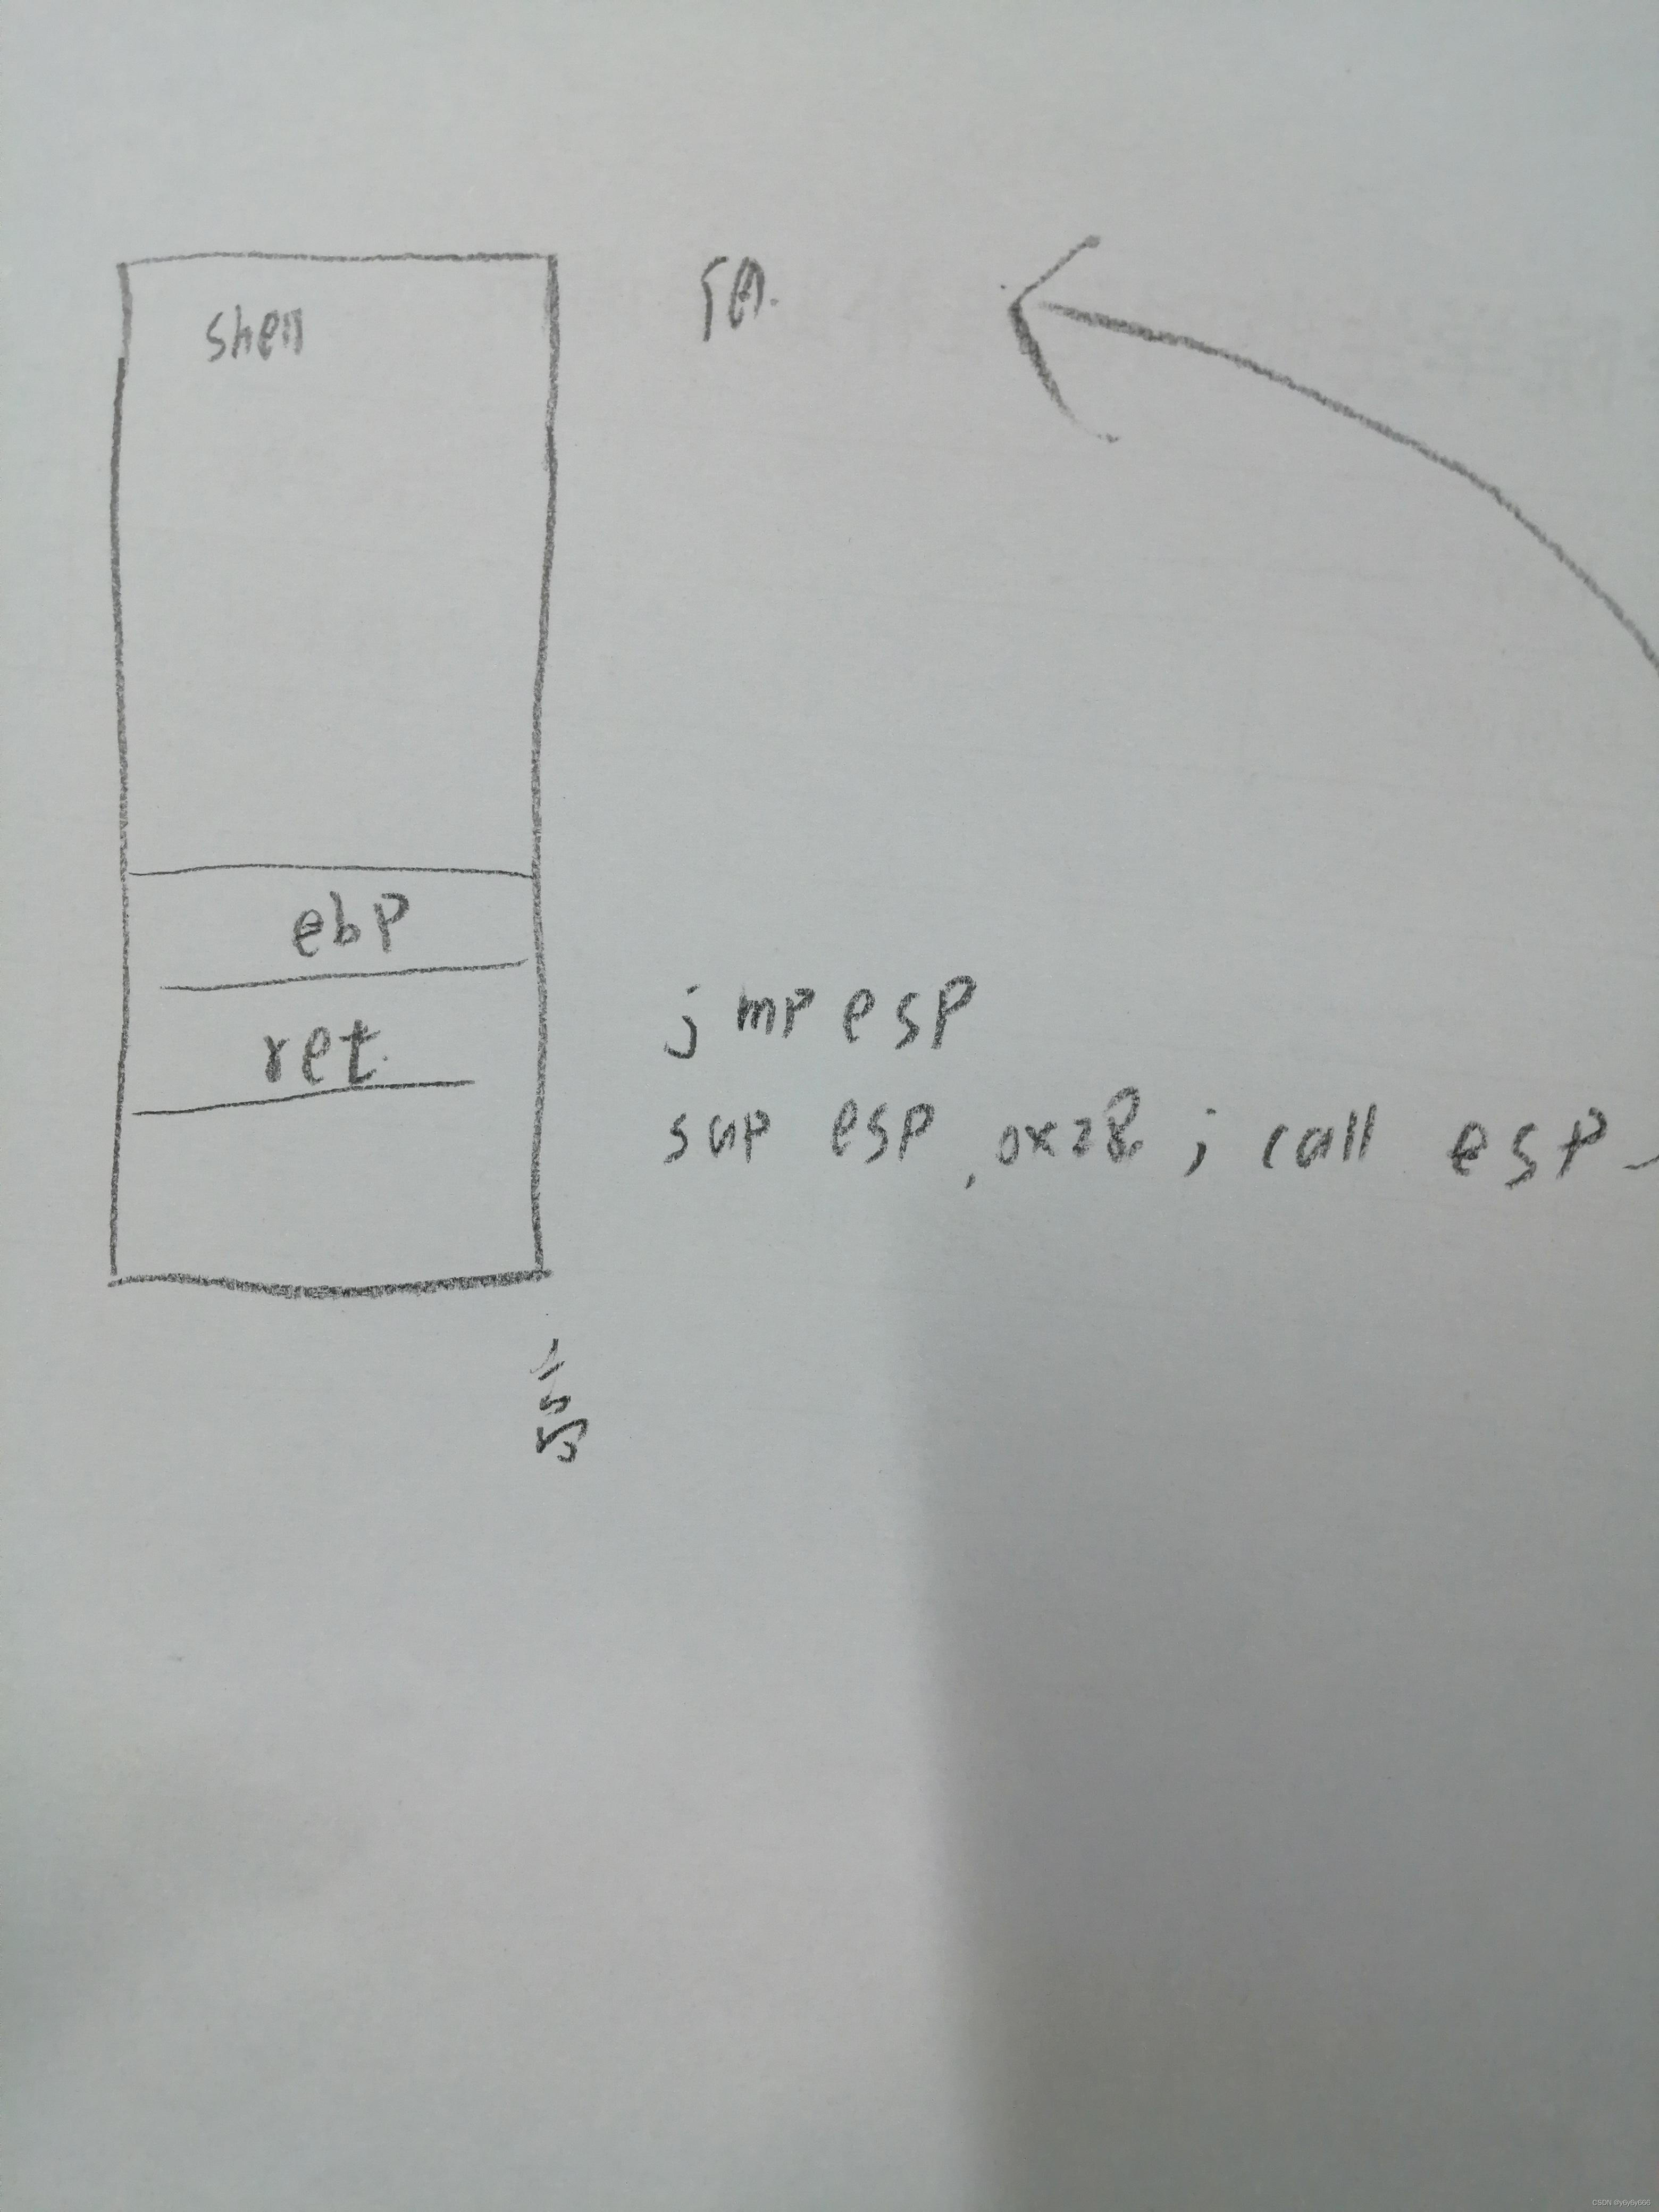 shell
低
ebp
ret
jmp esp
sup esp, 0x28; call esp
高
CSDN @y6y6y666